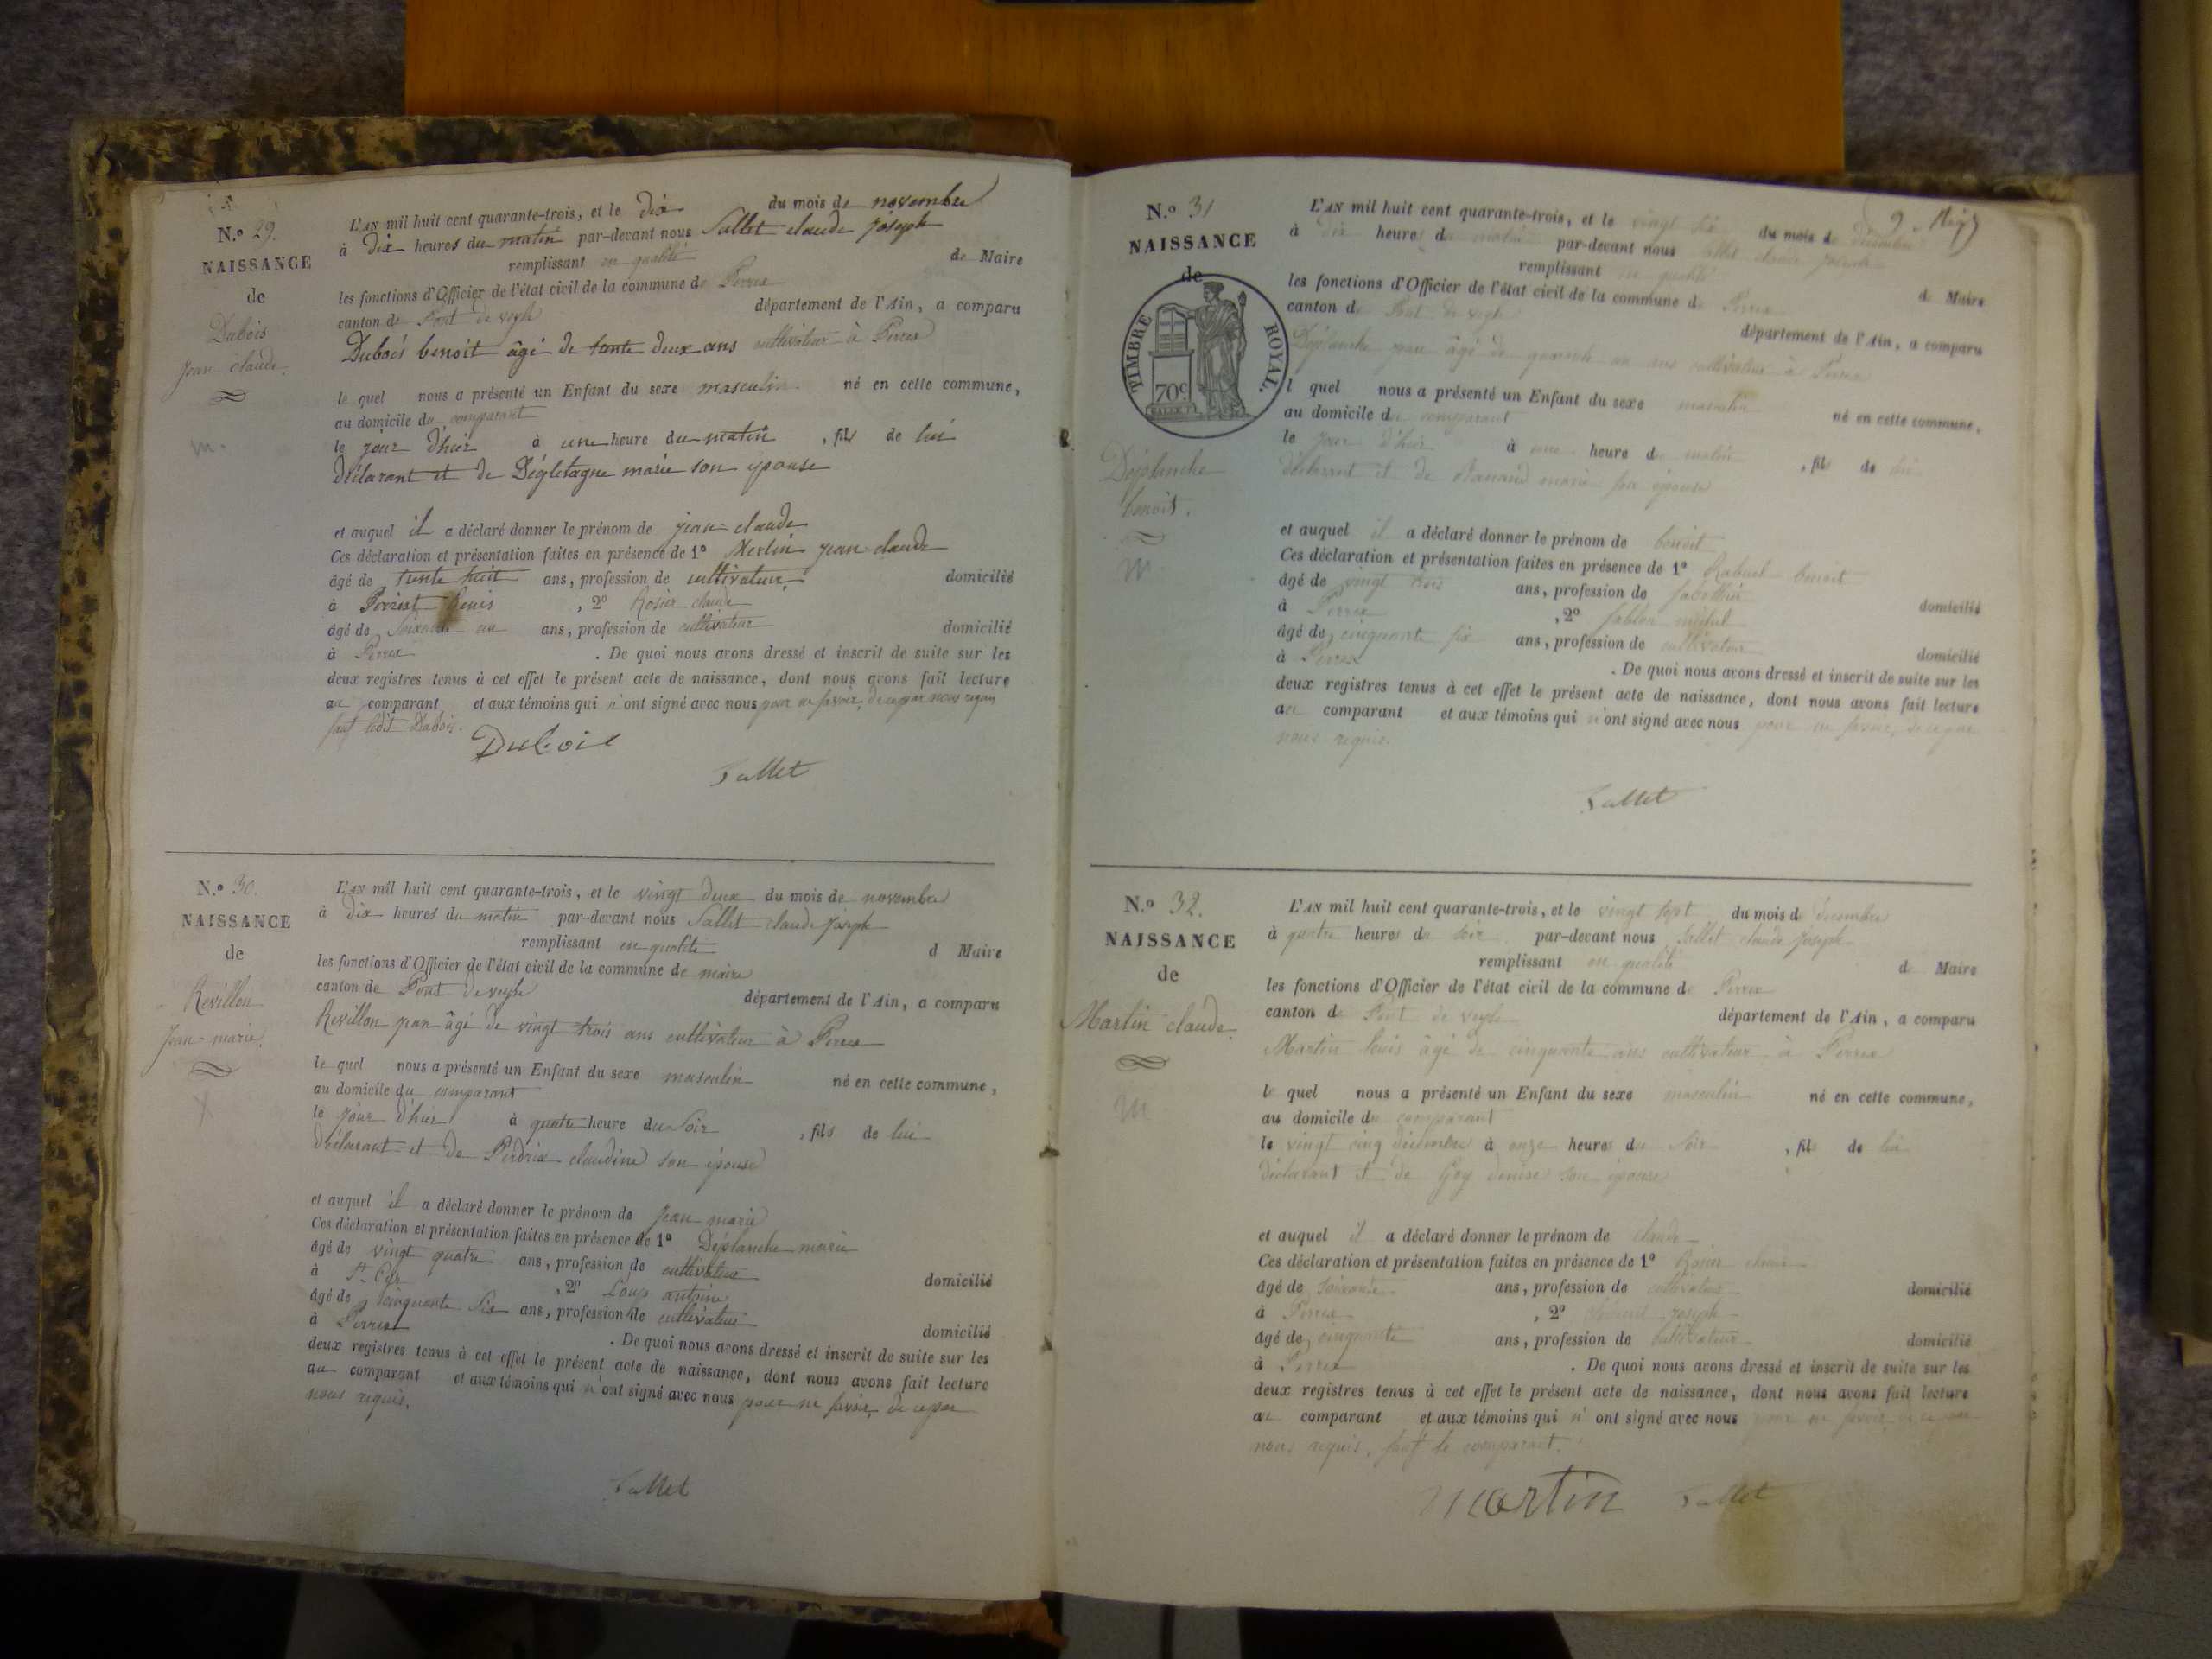 N.° 29.
NAISSANCE
de
Dubois
jean claude.
m.
L'AN mil huit cent quarante-trois, et le dix du mois de novembre
à dix heures du matin par-devant nous Sallet claude joseph
remplissant en qualité de Maire
les fonctions d'Officier de l'état civil de la commune de Perrex
canton de Pont de veyle département de l'Ain, a comparu
Dubois benoit âgé de trente deux ans cultivateur à Perrex
le quel nous a présenté un Enfant du sexe masculin né en cette commune,
au domicile du comparant
le jour d'hier à une heure du matin , fils de lui
déclarant et de Dégletagne marie son épouse
et auquel il a déclaré donner le prénom de jean-claude
Ces déclaration et présentation faites en présence de 1° Merlin jean claude
âgé de trente huit ans, profession de cultivateur domicilié
à Perrex , 2° Rosier claude
âgé de soixante un ans, profession de cultivateur domicilié
à Perrex . De quoi nous avons dressé et inscrit de suite sur les
deux registres tenus à cet effet le présent acte de naissance, dont nous avons fait lecture
au comparant et aux témoins qui n'ont signé avec nous pour ne savoir, de ce par nous requis
sauf ledit Dubois.
Dubois
Sallet
N.° 30.
NAISSANCE
de
Revillon
Jean-marie.
L'AN mil huit cent quarante-trois, et le vingt deux du mois de novembre
à dix heures du matin par-devant nous Sallet claude joseph
remplissant en qualité d Maire
les fonctions d'Officier de l'état civil de la commune de maire
canton de Pont de veyle département de l'Ain, a comparu
Revillon jean âgé de vingt trois ans cultivateur à Perrex
le quel nous a présenté un Enfant du sexe masculin né en cette commune,
au domicile du comparant
le jour d'hier à quatre heure du soir , fils de lui
déclarant et de Perdrix claudine son épouse
et auquel il a déclaré donner le prénom de Jean-marie
Ces déclaration et présentation faites en présence de 1° Déplanche marie
âgé de vingt quatre ans, profession de cultivateur domicilié
à St. Cyr , 2° Loup antoine
âgé de cinquante six ans, profession de cultivateur domicilié
à Perrex . De quoi nous avons dressé et inscrit de suite sur les
deux registres tenus à cet effet le présent acte de naissance, dont nous avons fait lecture
au comparant et aux témoins qui n'ont signé avec nous pour ne savoir, de ce par
nous requis.
Sallet
9.
N.° 31
NAISSANCE
de
TIMBRE ROYAL.
70c
Déplanche
benoit.
m
L'AN mil huit cent quarante-trois, et le vingt six du mois de décembre
à dix heures du matin par-devant nous Sallet claude joseph
remplissant en qualité d Maire
les fonctions d'Officier de l'état civil de la commune de Perrex
canton de Pont de veyle département de l'Ain, a comparu
Déplanche jean âgé de quarante un ans cultivateur à Perrex
l quel nous a présenté un Enfant du sexe masculin né en cette commune,
au domicile du comparant
le jour d'hier à une heure du matin , fils de lui
déclarant et de marie son épouse
et auquel il a déclaré donner le prénom de benoit
Ces déclaration et présentation faites en présence de 1° Rabuel benoit
âgé de vingt trois ans, profession de sabottier domicilié
à Perrex , 2°
âgé de cinquante six ans, profession de cultivateur domicilié
à Perrex . De quoi nous avons dressé et inscrit de suite sur les
deux registres tenus à cet effet le présent acte de naissance, dont nous avons fait lecture
au comparant et aux témoins qui n'ont signé avec nous pour ne savoir, de ce par
nous requis.
Sallet
N.° 32.
NAISSANCE
de
Martin claude.
m
L'AN mil huit cent quarante-trois, et le vingt sept du mois d décembre
à quatre heures du soir par-devant nous Sallet claude joseph
remplissant en qualité de Maire
les fonctions d'Officier de l'état civil de la commune de Perrex
canton de Pont de veyle département de l'Ain, a comparu
Martin louis âgé de cinquante ans cultivateur à Perrex
le quel nous a présenté un Enfant du sexe masculin né en cette commune,
au domicile du comparant
le vingt cinq décembre à onze heures du soir , fils de lui
déclarant et de Goy denise son épouse
et auquel il a déclaré donner le prénom de claude
Ces déclaration et présentation faites en présence de 1° Rosier claude
âgé de soixante ans, profession de cultivateur domicilié
à Perrex , 2° joseph
âgé de cinquante ans, profession de cultivateur domicilié
à Perrex . De quoi nous avons dressé et inscrit de suite sur les
deux registres tenus à cet effet le présent acte de naissance, dont nous avons fait lecture
au comparant et aux témoins qui n'ont signé avec nous pour ne savoir, de ce par
nous requis, sauf le comparant.
Martin Sallet